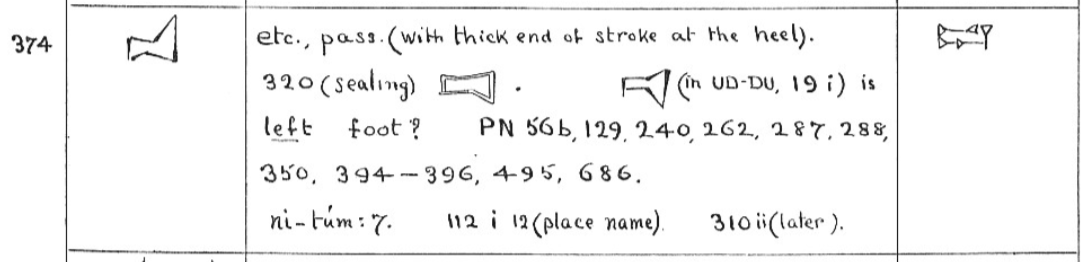 374 etc., pass. (with thick end of stroke at the heel).
320 (sealing) . (in UD-DU, 19 i) is
left foot? PN 56b, 129, 240, 262, 287, 288,
350, 394-396, 495, 686.
ni-túm: 7. 112 i 12 (place name). 310 ii (later).